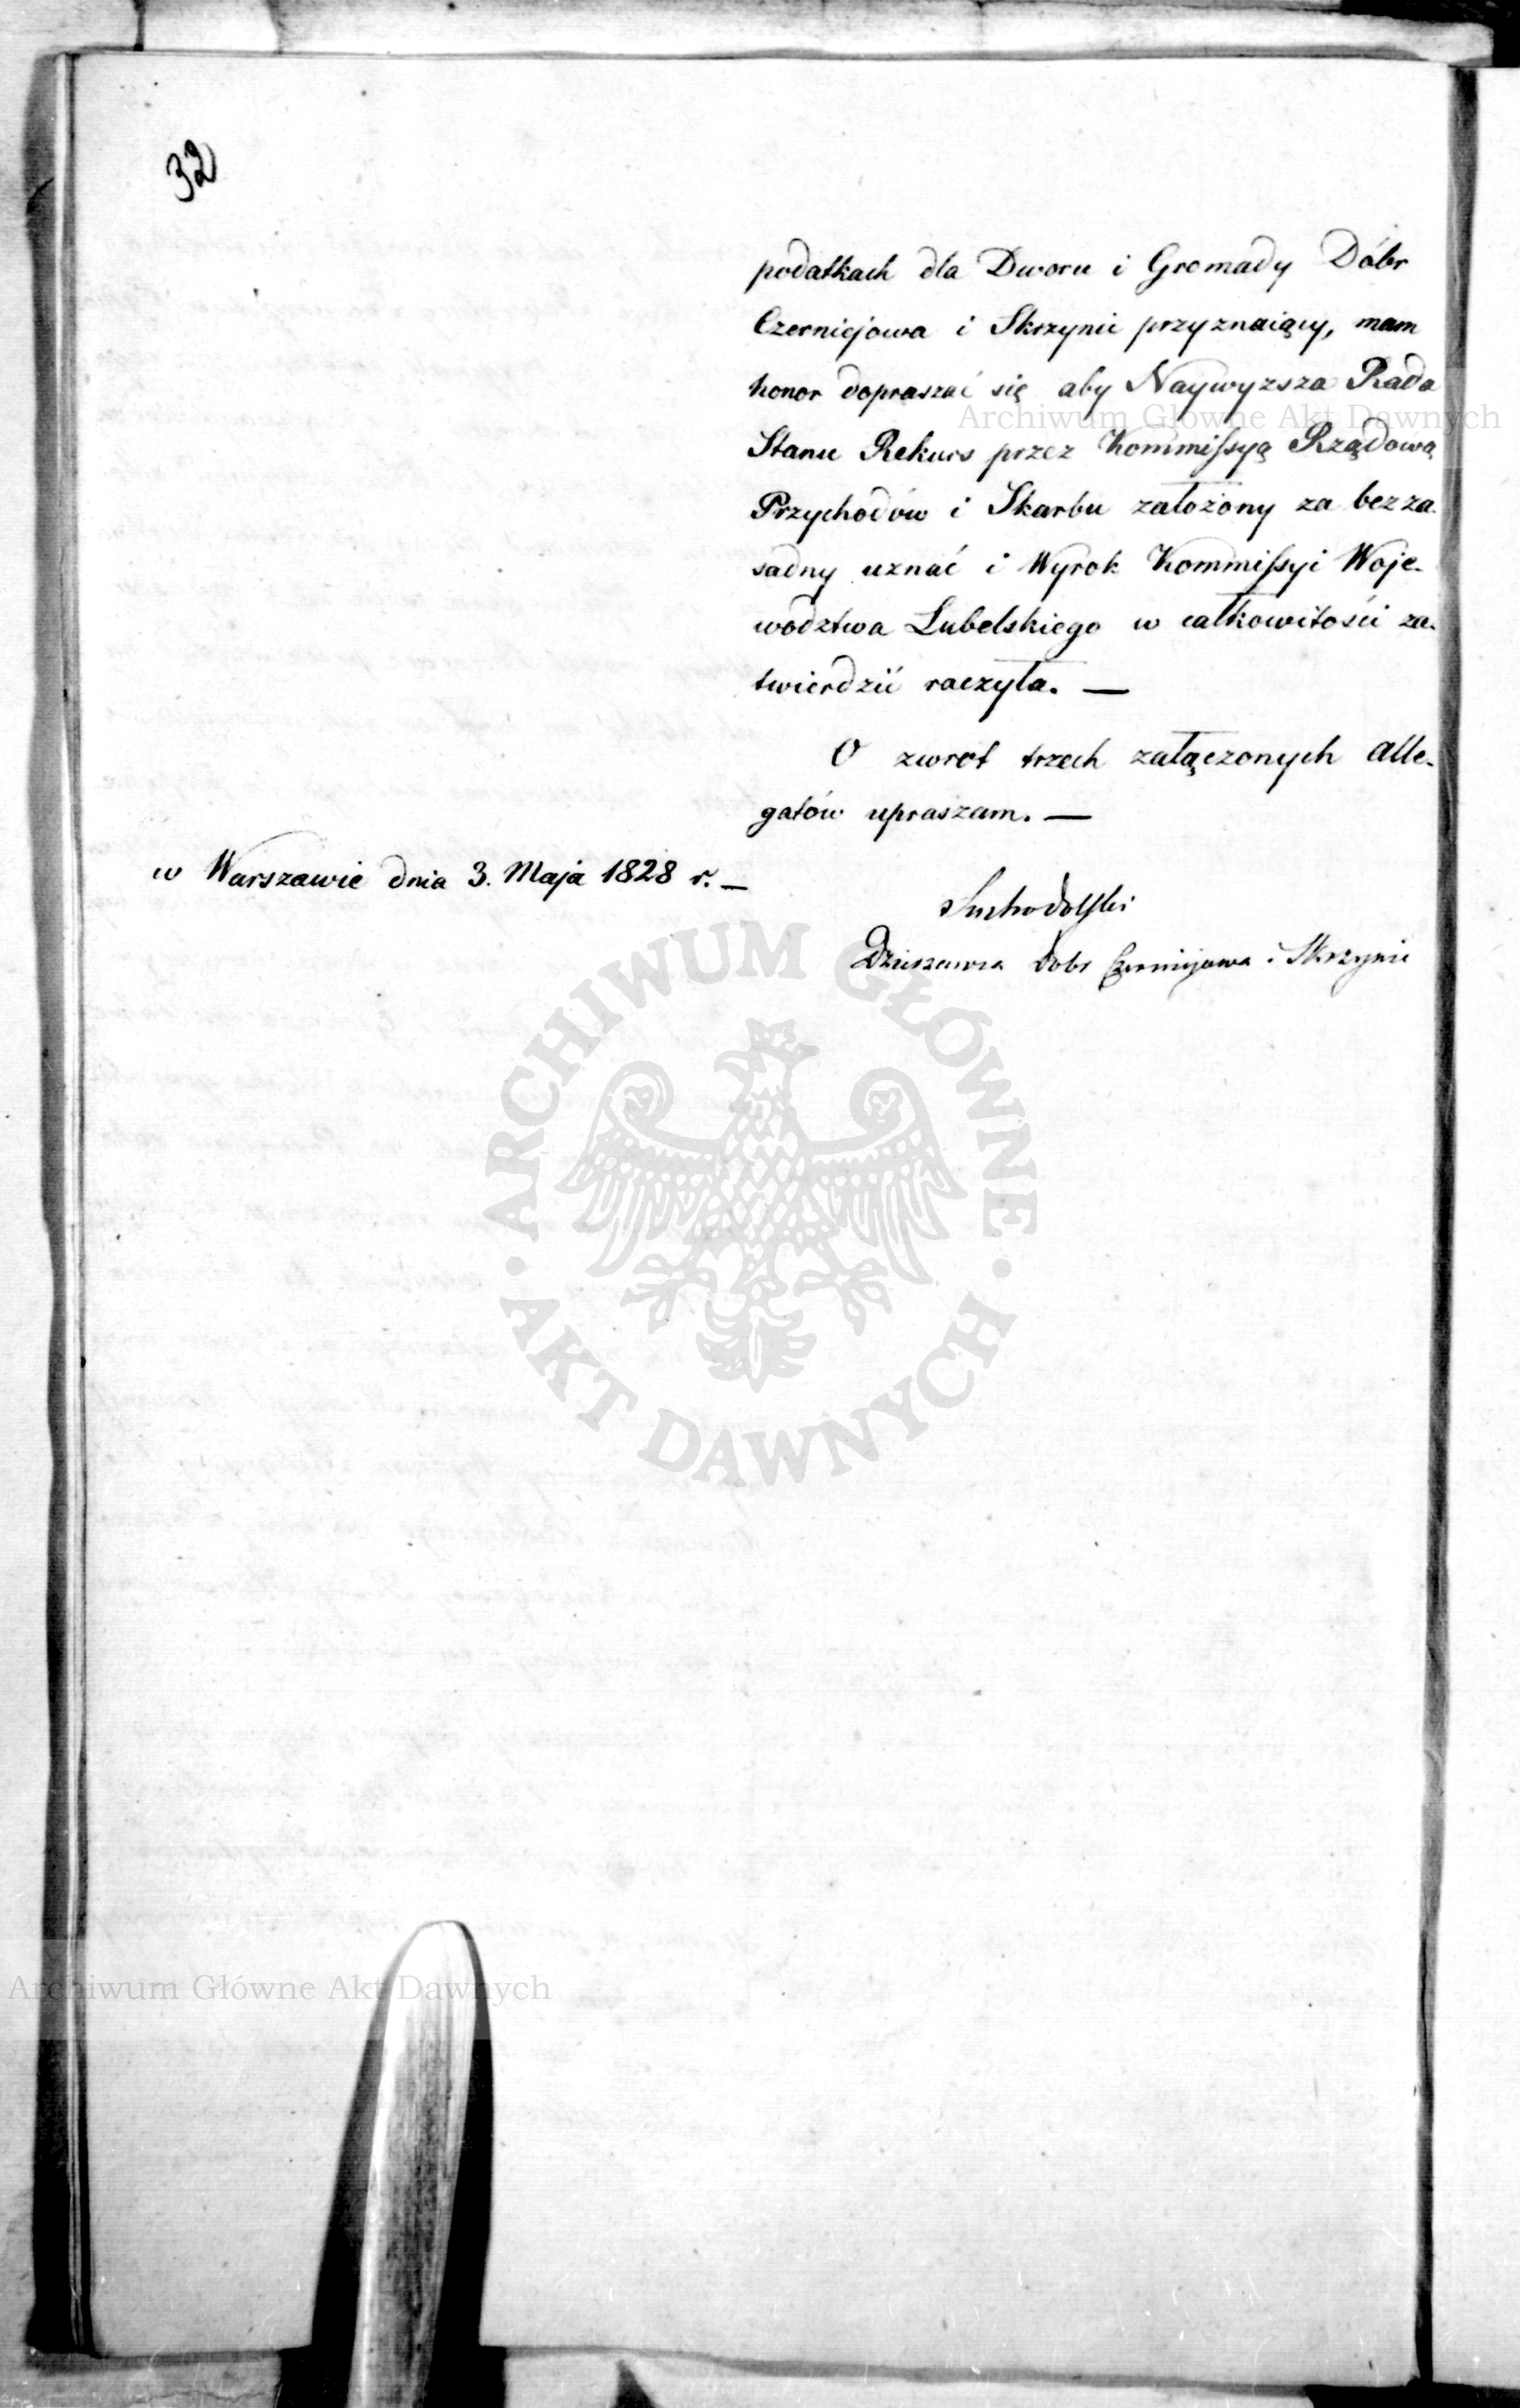 32
podatkach dla Dworu i Gromady Dóbr
Czerniejowa i Skrzynic przyznaiący, mam
honor dopraszać się aby Naywyzsza Rada
Archiwum Główne Akt Dawnych
Stanu Rekurs przez Kommissyą Rządową
Przychodów i Skarbu założony za bezza-
sadny uznać i Wyrok Kommissyi Woje-
wództwa Lubelskiego w całkowitości za-
twierdzić raczyła. —
O zwrot trzech załączonych Alle-
gatów upraszam. —
w Warszawie dnia 3. Maja 1828 r. —
Suchodolski
Dzierzawca Dobr Czerniejowa i Skrzynic
ARCHIWUM GŁÓWNE
AKT DAWNYCH
Archiwum Główne Akt Dawnych